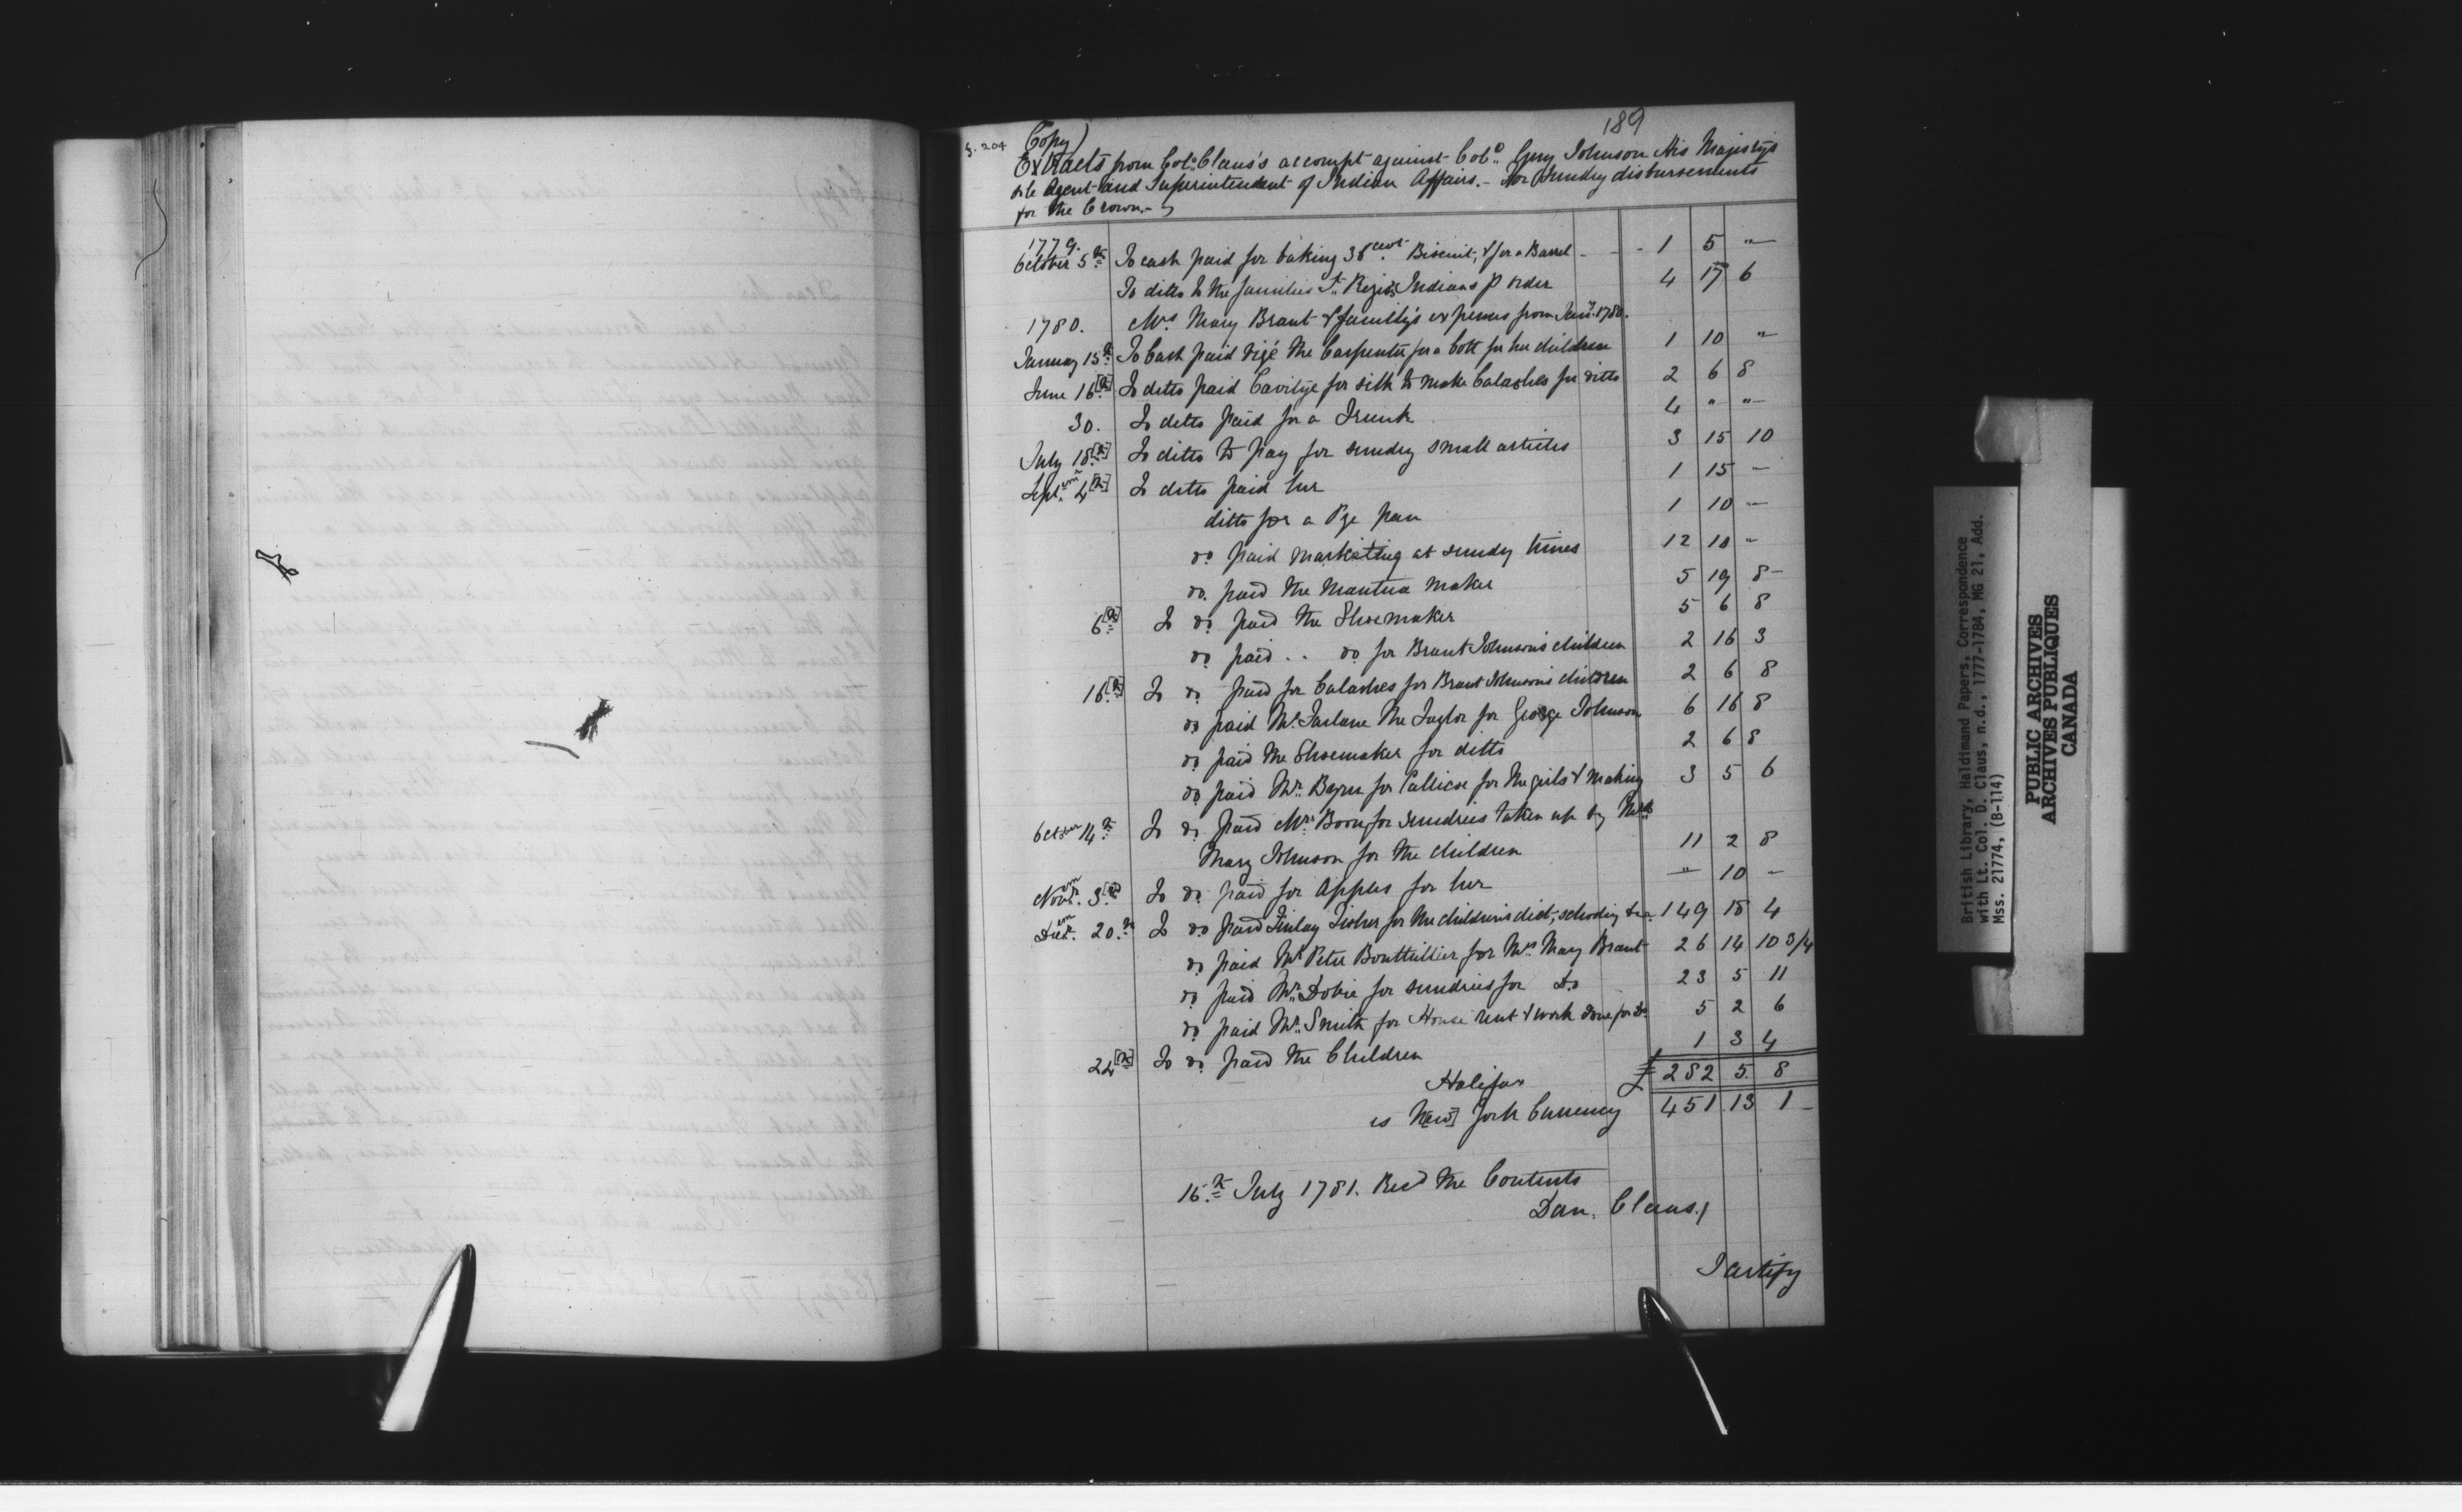 189
f. 204
Copy)
Extracts from Colo. Claus's accompt against Colo. Guy Johnson His Majesty's
sole Agent and Superintendent of Indian Affairs. - For Sundry disbursements
for the Crown. -
1779.
October 5th To cash paid for baking 38 cwt. Biscuit, & for a Barrel - - - 1 5 "
To ditto to the families St. Regis Indians p order 4 17 6
1780. Mrs Mary Brant & family's expenses from Jany. 1780.
January 15th To Cash paid the Carpenter for a Cott for her children 1 10 "
June 16[th] To ditto paid for silk to make Calashes for ditto 2 6 8
30. To ditto paid for a Trunk 4 " "
July 18[th] To ditto to pay for sundry small articles 3 15 10
Septem. 4[th] To ditto paid her 1 15 "
ditto for a Pye pan 1 10 "
do. paid marketing at sundry times 12 10 "
do. paid the Mantua Maker 5 19 8
6[th] To do. paid the Shoemaker 5 6 8
do. paid . . do. for Brant Johnson's children 2 16 3
16[th] To do. paid for Calashes for Brant Johnson's children 2 6 8
do. paid McFarlane the Taylor for George Johnson 6 16 8
do. paid the Shoemaker for ditto 2 6 8
do. paid Mr. Byrn for Callicoe for the girls & making 3 5 6
October 14th To do. paid Mrs. for sundries taken up by
Mary Johnson for the children 11 2 8
Novem. 3[rd] To do. paid for Apples for her " 10 "
Decem. 20.th To do. paid Finlay Fisher for the children's diet, schooling &ca. 149 18 4
do. paid Mr. Peter Bouthillier for Mrs. Mary Brant 26 14 10 3/4
do. paid Mr. Dobie for sundries for Do 23 5 11
do. paid Mr. Smith for House rent & work done for Do. 5 2 6
24[th] To do. paid the Children 1 3 4
Halifax £ 282 5. 8
is N[ew] York Currency 451 13 1
16th July 1781. Recd the Contents
Dan. Claus./
I certify
British Library, Haldimand Papers, Correspondence
with Lt. Col. D. Claus, n.d., 1777-1784, MG 21, Add.
Mss. 21774, (B-114)
PUBLIC ARCHIVES
ARCHIVES PUBLIQUES
CANADA